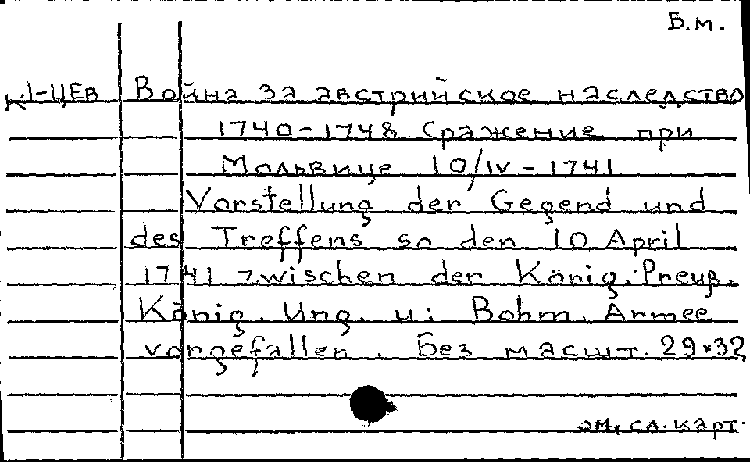 Б.м.
К1-ЦЕВ Война за австрийское наследство
1740-1748 Сражение при
Мольвице 10/IV-1741
Vorstellung der Gegend und
des Treffens so den 10 April
1741 zwischen der König. Preuß.
König. Ung. u: Bohm. Armee
vorgefallen. Без масшт. 29×32
см. сл. карт.